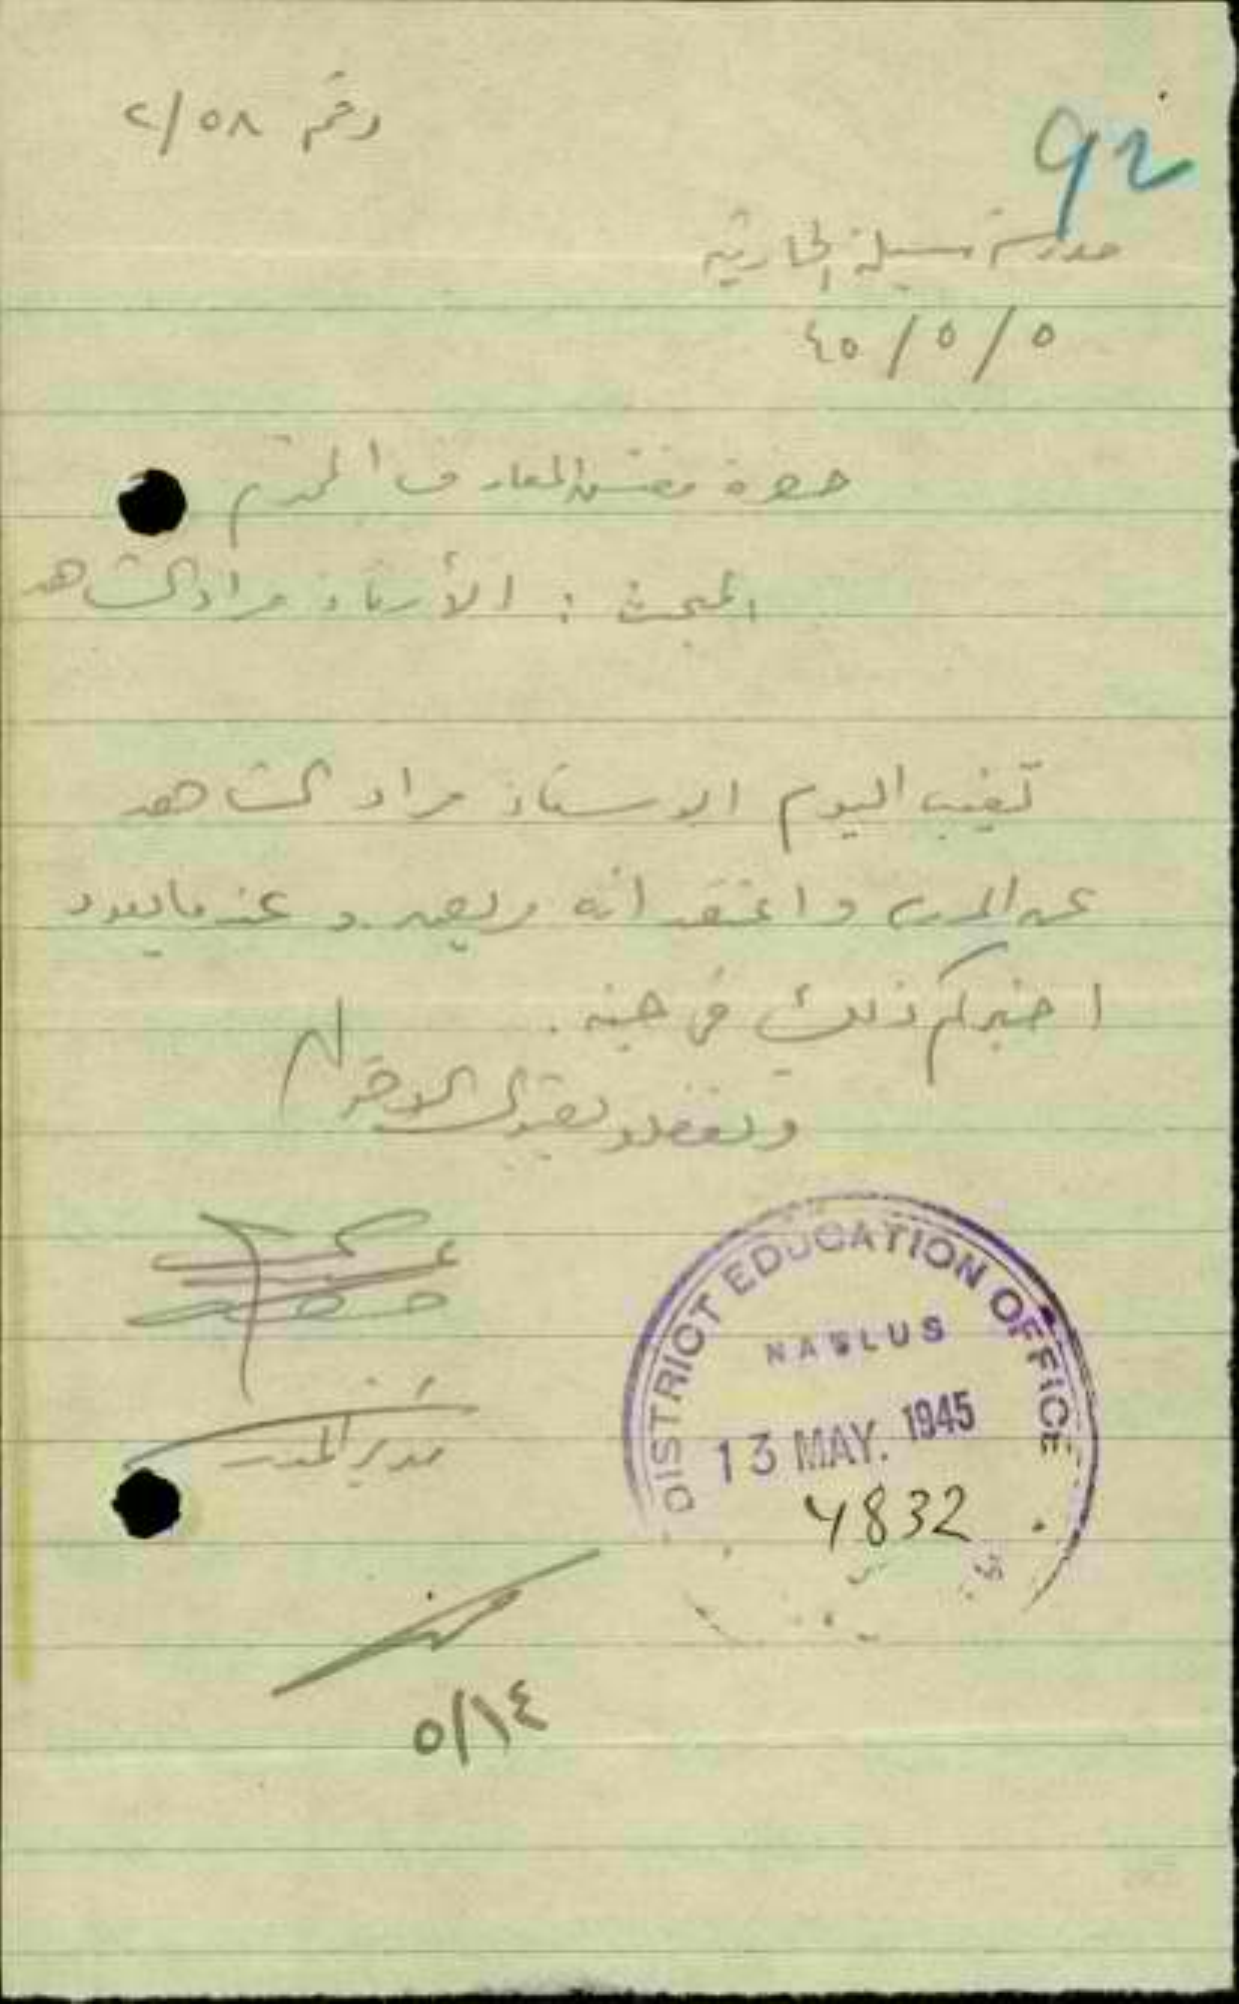 رقم ٢/٥٨
92
مدرسة سيلة الحارثية
٤٥/٥/٥
حضرة مفتش المعارف المحترم
المبحث : الأستاذ مراد الشاهد
تغيب اليوم الاستاذ مراد الشاهد
عن المدرسة واعتقد انه مريض وعندما يعود
اخبركم ذلك في حينه .
وتفضلوا بقبول الاحترام
مدير المدرسة
DISTRICT EDUCATION OFFICE
NABLUS
13 MAY. 1945
4832
٥/١٤